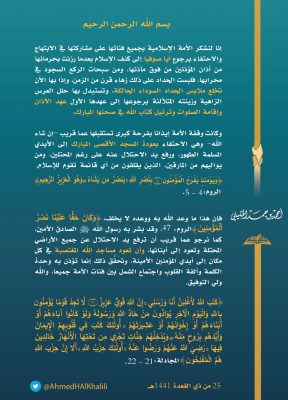 بسم الله الرحمن الرحيم
إنا لنشكر الأمة الإسلامية بجميع فئاتها على مشاركتها في الابتهاج
والاحتفاء برجوع آيا صوفيا إلى كنف الإسلام بعدما رزئت بحرمانها
من أذان المؤذنين من فوق مآذنها، ومن سبحات الركع السجود في
محرابها، فلبست الحداد على ذلك زهاء قرن من الزمن، وإذا بها الآن
تخلع ملابس الحداد السوداء الحالكة، وتستبدل بها حلل العرس
الزاهية وزينته المتلألئة برجوعها إلى عهدها الأول عهد الأذان
وإقامة الصلوات وترتيل كتاب الله في صحنها المبارك.
وكانت وقفة الأمة إيذانا بفرحة كبرى تستقبلها عما قريب -إن شاء
الله- وهي الاحتفاء بعودة المسجد الأقصى المبارك إلى أيدي
المسلمة الطهور، ورفع يد الاحتلال عنه على رغم المحتلين، ومن
يواليهم من المارقين، الذين يقلقون من أي قائمة تقوم للإسلام،
﴿وَيَوْمَئِذٍ يَفْرَحُ الْمُؤْمِنُونَ ۝ بِنَصْرِ اللَّهِ ۚ يَنْصُرُ مَنْ يَشَاءُ ۖ وَهُوَ الْعَزِيزُ الرَّحِيمُ﴾
الروم: 4 - 5.
فإن هذا ما وعد الله به ووعده لا يخلف، ﴿وَكَانَ حَقًّا عَلَيْنَا نَصْرُ
الْمُؤْمِنِينَ﴾ الروم: 47، وقد بشر به رسول الله ﷺ الصادق الأمين،
كما نرجو عما قريب أن ترفع يد الاحتلال عن جميع الأراضي
المحتلة وتعود إلى أبنائها، وأن تعود مساجد الله المغتصبة في كل
مكان إلى أيدي المؤمنين الأمينة، وتحقق ذلك إنما تؤذن به وحدة
الكلمة وألفة القلوب واجتماع الشمل بين فئات الأمة جميعا، والله
ولي التوفيق.
﴿كَتَبَ اللَّهُ لَأَغْلِبَنَّ أَنَا وَرُسُلِي ۚ إِنَّ اللَّهَ قَوِيٌّ عَزِيزٌ ۝ لَا تَجِدُ قَوْمًا يُؤْمِنُونَ
بِاللَّهِ وَالْيَوْمِ الْآخِرِ يُوَادُّونَ مَنْ حَادَّ اللَّهَ وَرَسُولَهُ وَلَوْ كَانُوا آبَاءَهُمْ أَوْ
أَبْنَاءَهُمْ أَوْ إِخْوَانَهُمْ أَوْ عَشِيرَتَهُمْ ۚ أُولَئِكَ كَتَبَ فِي قُلُوبِهِمُ الْإِيمَانَ
وَأَيَّدَهُمْ بِرُوحٍ مِنْهُ ۖ وَيُدْخِلُهُمْ جَنَّاتٍ تَجْرِي مِنْ تَحْتِهَا الْأَنْهَارُ خَالِدِينَ
فِيهَا ۚ رَضِيَ اللَّهُ عَنْهُمْ وَرَضُوا عَنْهُ ۚ أُولَئِكَ حِزْبُ اللَّهِ ۚ أَلَا إِنَّ حِزْبَ اللَّهِ
هُمُ الْمُفْلِحُونَ﴾ المجادلة: 21 - 22.
أحمد بن حمد الخليلي
25 من ذي القعدة 1441هـ
@AhmedHAlKhalili